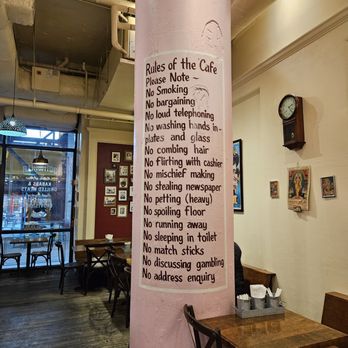 Rules of the Cafe
Please Note ~
No Smoking
No bargaining
No loud telephoning
No washing hands in-
plates and glass
No combing hair
No flirting with cashier
No mischief making
No stealing newspaper
No petting (heavy)
No spoiling floor
No running away
No sleeping in toilet
No match sticks
No discussing gambling
No address enquiry